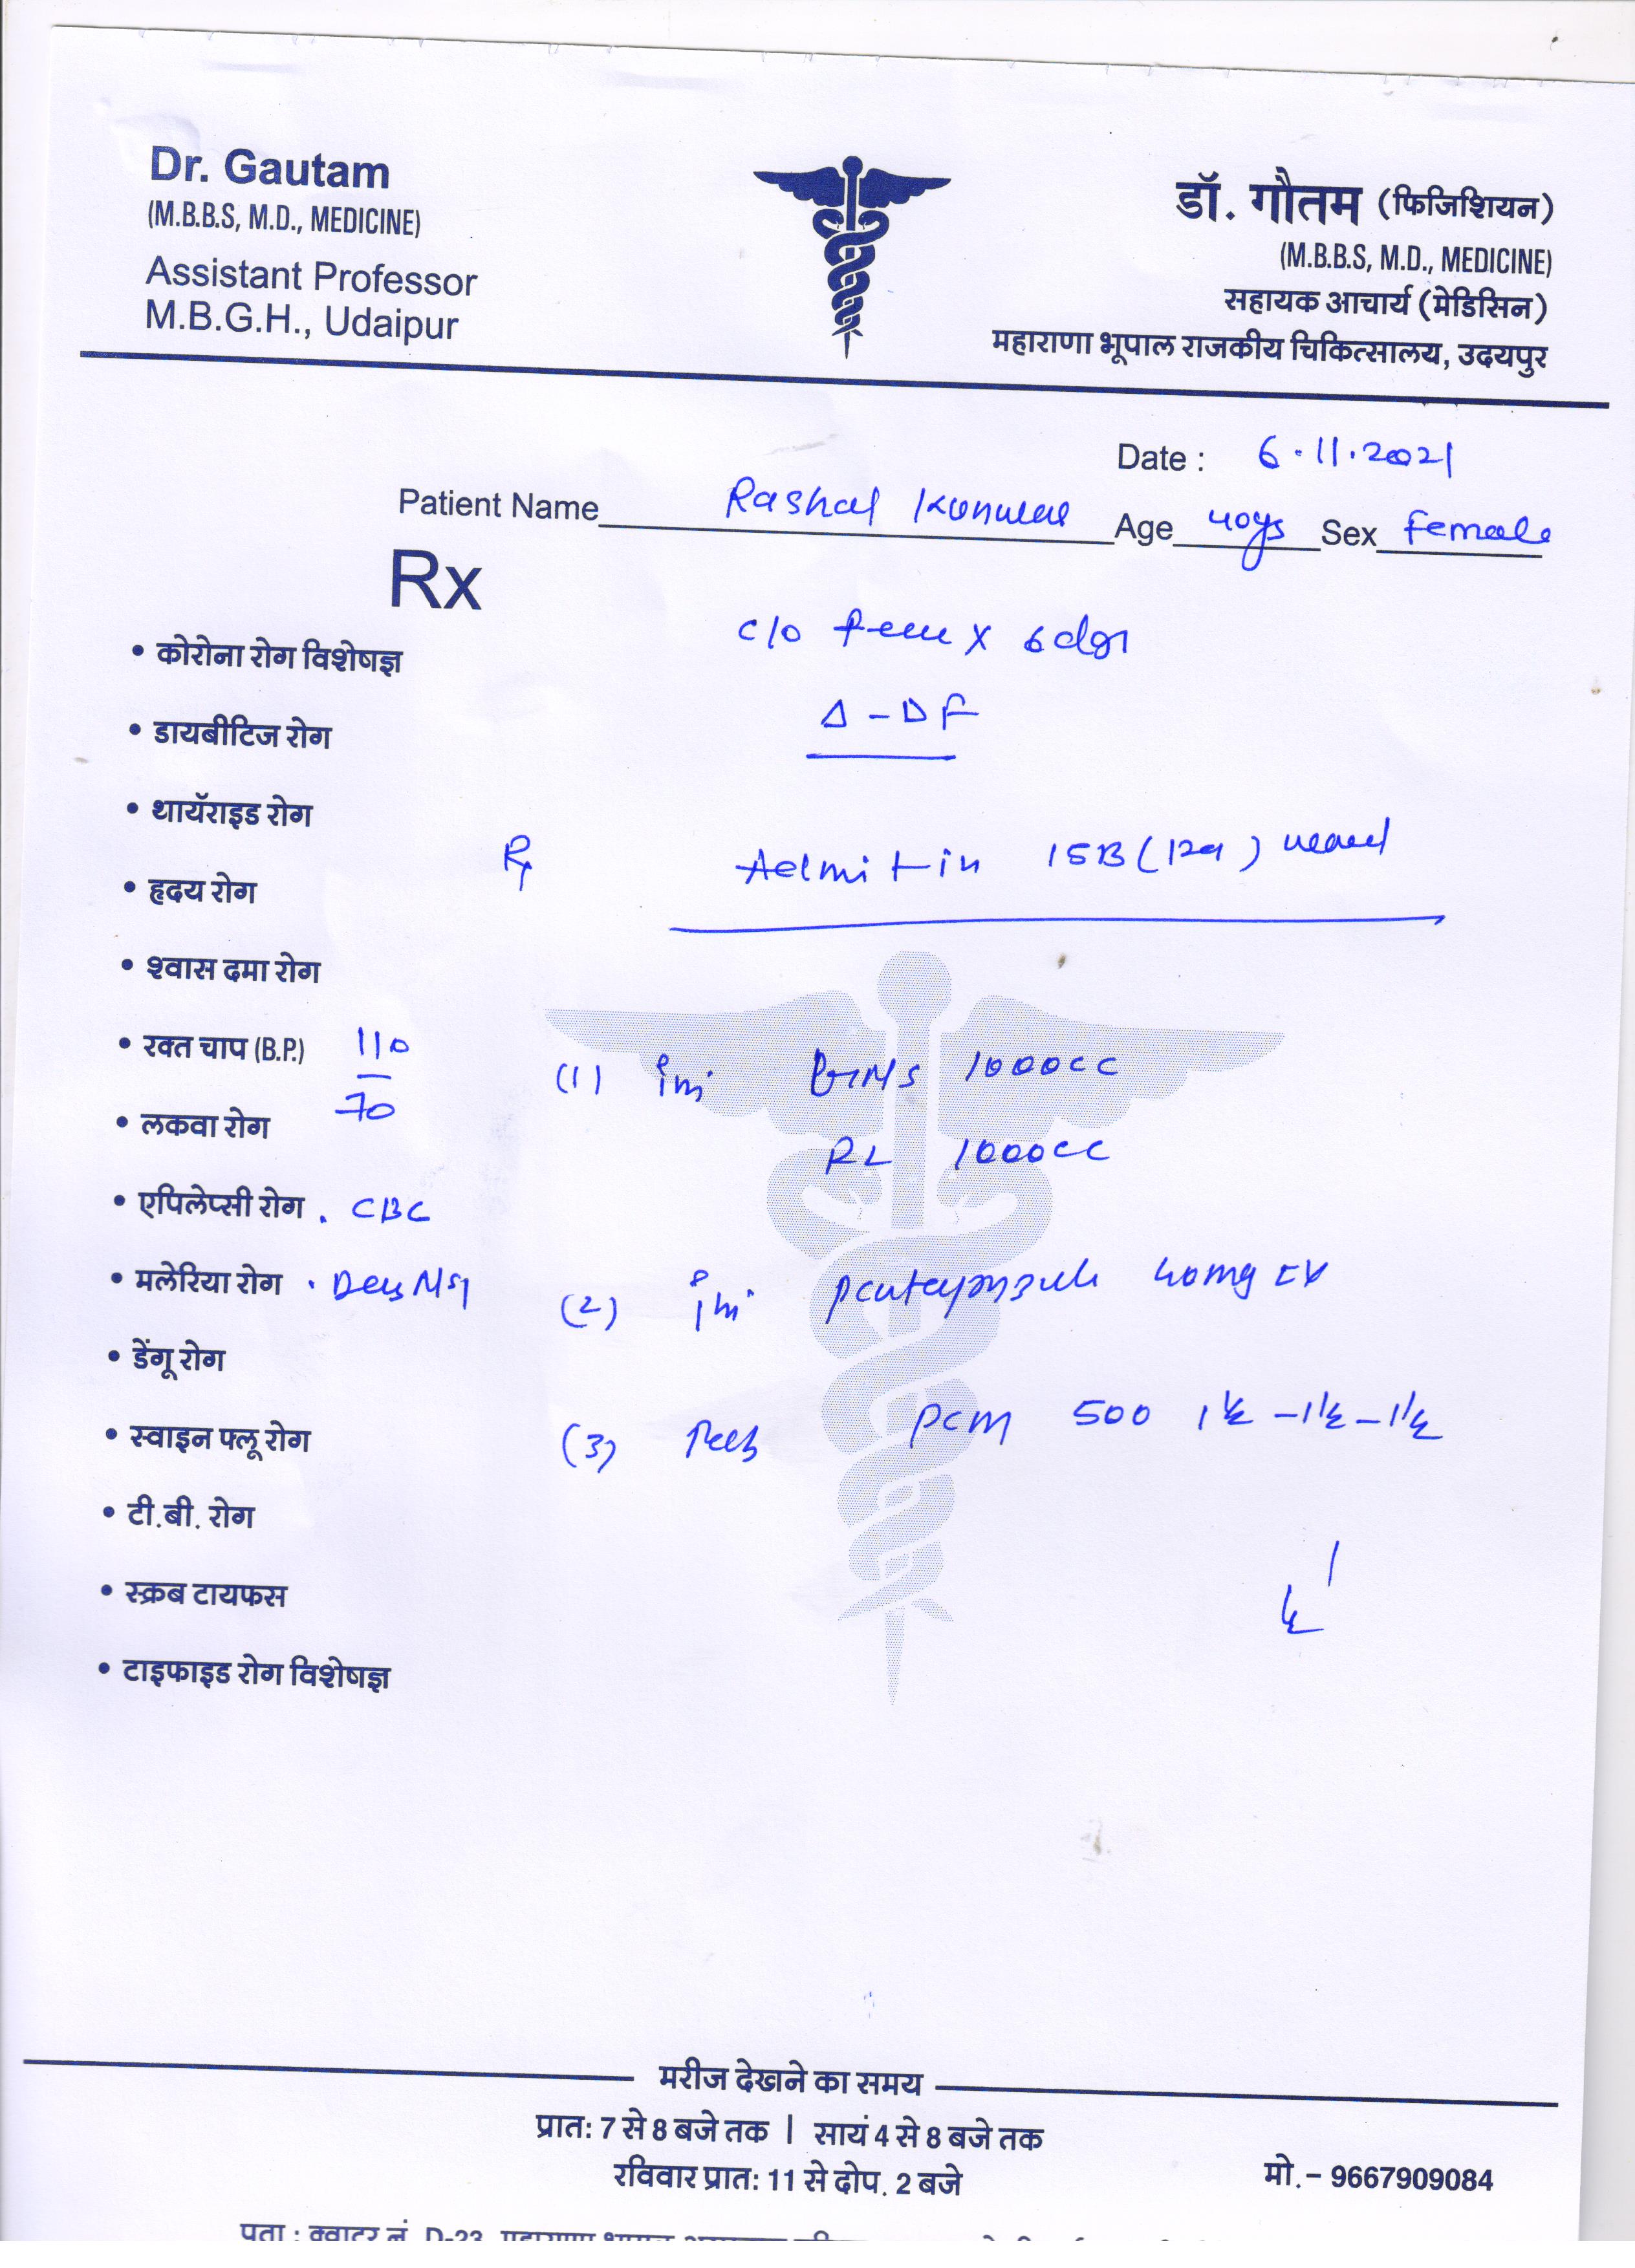 Dr. Gautam
(M.B.B.S, M.D., MEDICINE)
Assistant Professor
M.B.G.H., Udaipur
डॉ. गौतम (फिजिशियन)
(M.B.B.S, M.D., MEDICINE)
सहायक आचार्य (मेडिसिन)
महाराणा भूपाल राजकीय चिकित्सालय, उदयपुर
Date : 6.11.2021
Patient Name Rashal Age 40ys Sex female
Rx
c/o X 6
Δ - DF
• कोरोना रोग विशेषज्ञ
• डायबीटिज रोग
• थायॅराइड रोग
• हृदय रोग
• श्वास दमा रोग
• रक्त चाप (B.P.) 110
70
• लकवा रोग
• एपिलेप्सी रोग . CBC
• मलेरिया रोग
• डेंगू रोग
• स्वाइन फ्लू रोग
• टी.बी. रोग
• स्क्रब टायफस
• टाइफाइड रोग विशेषज्ञ
Rx Admit in 15B ward
(1) 1000cc
RL 1000cc
(2) 40mg
(3) PCM 500 1½ - 1½ - 1½
मरीज देखने का समय
प्रात: 7 से 8 बजे तक | सायं 4 से 8 बजे तक
रविवार प्रात: 11 से दोप. 2 बजे
मो.- 9667909084
पता : क्वाटर नं. D-23,